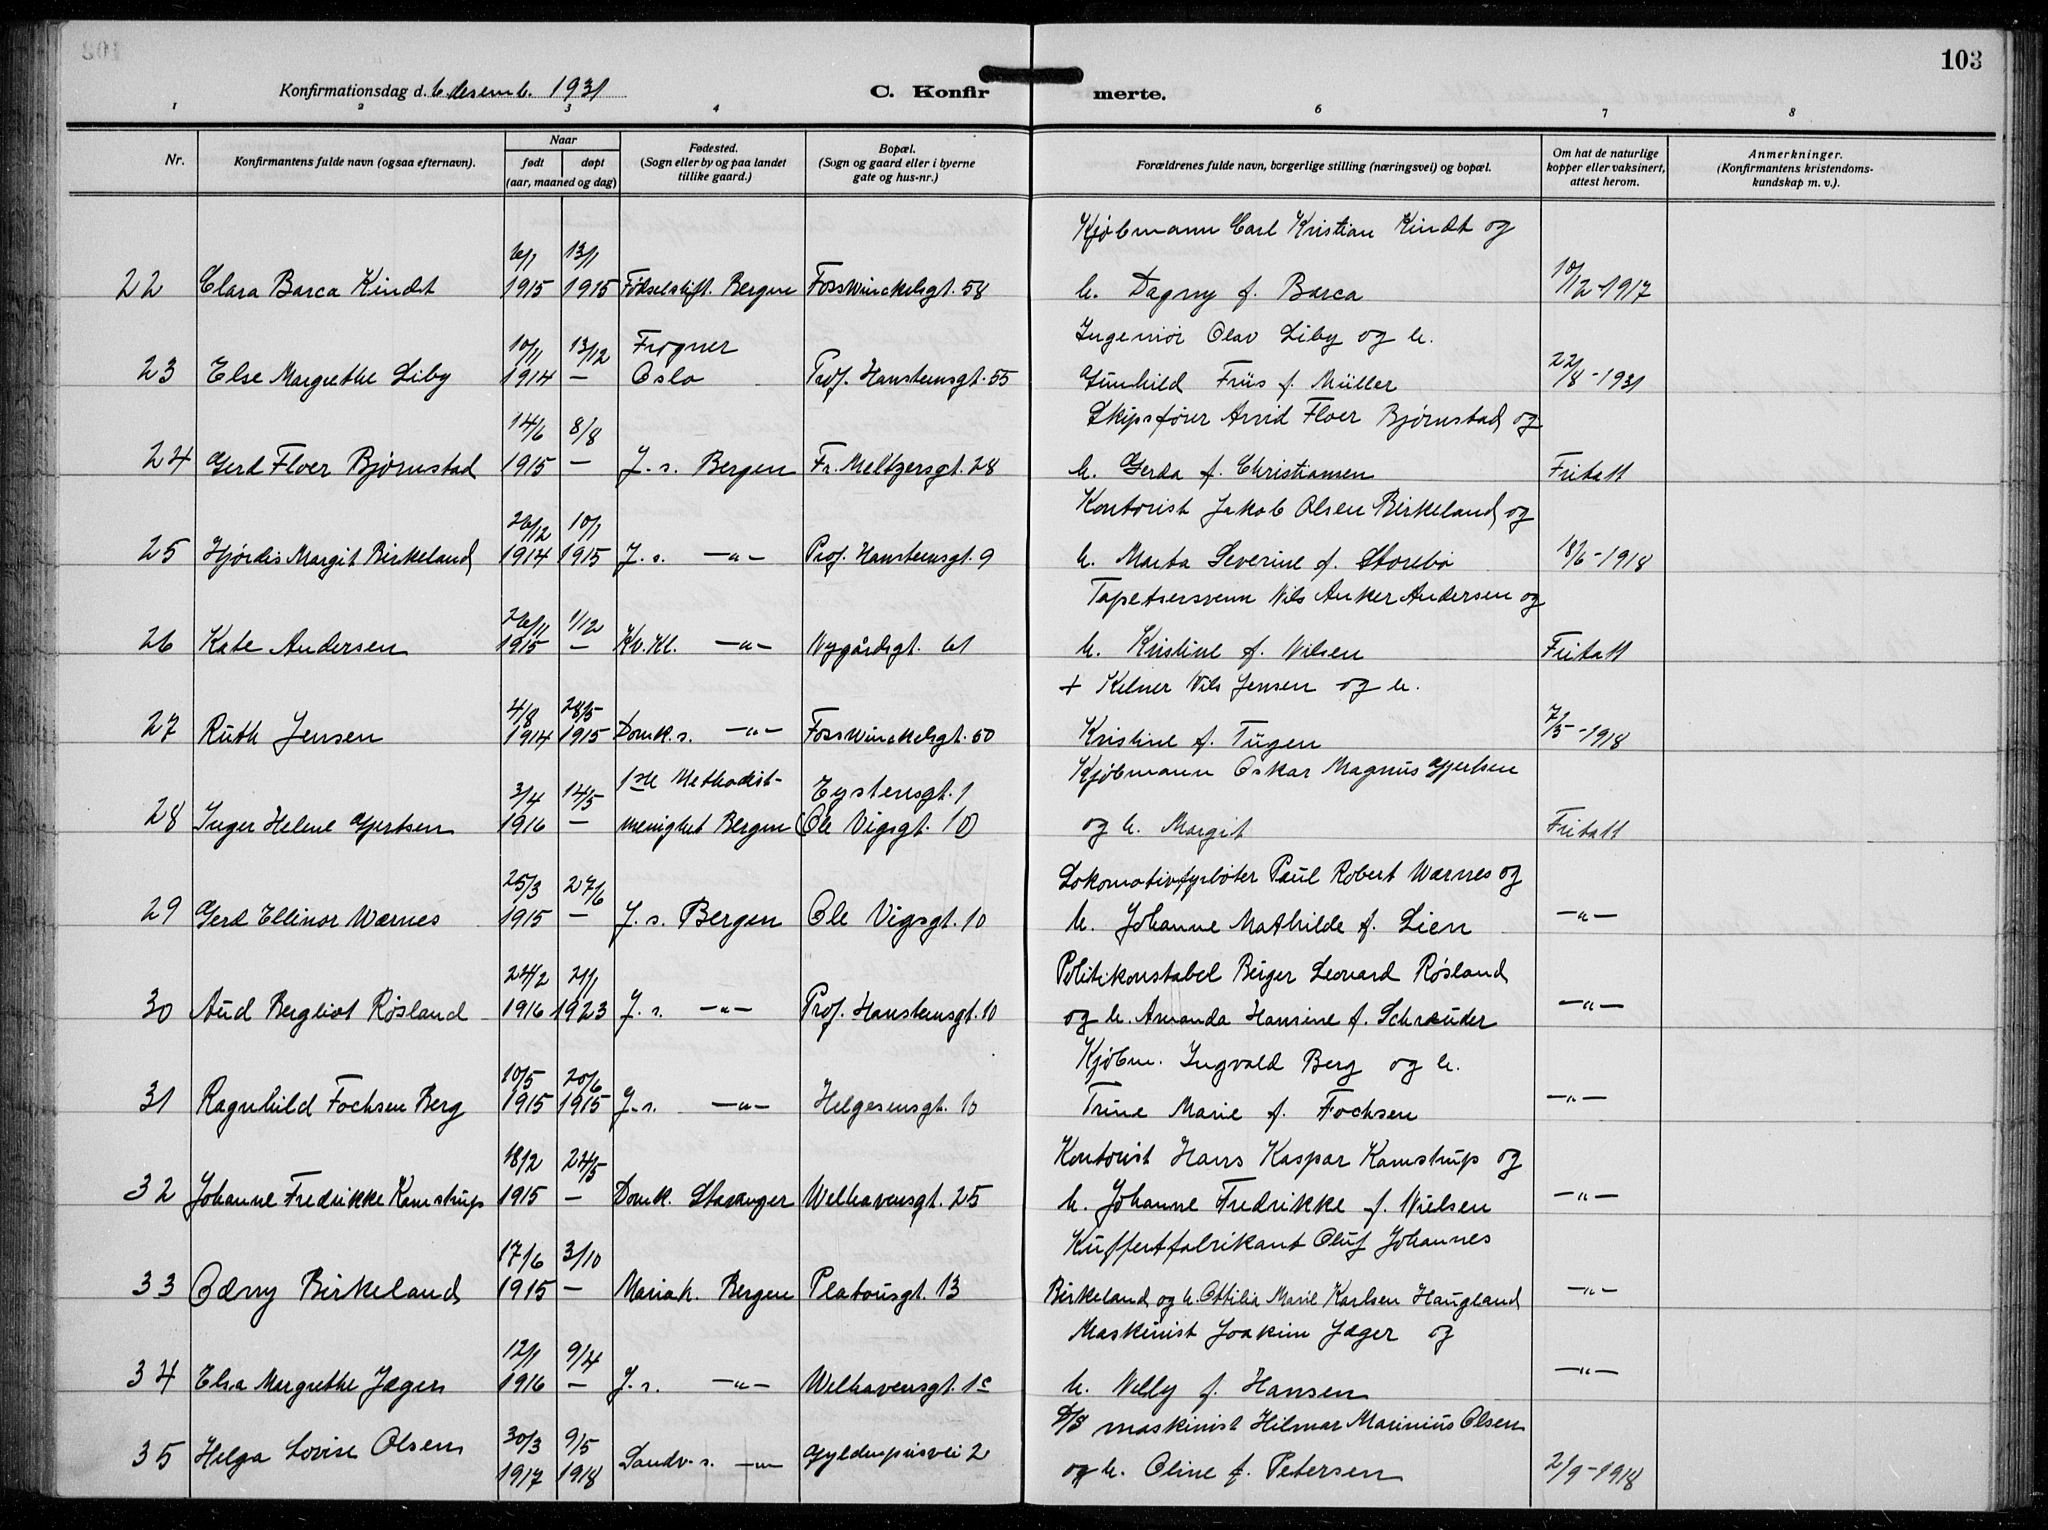 103
Konfirmationsdag d. 6 desemb. 1931
C. Konfirmerte.
1 2 3 4 6 7 8
Nr.
Konfirmantens fulde navn (ogsaa efternavn).
Naar
født døpt
(aar, maaned og dag)
Fødested.
(Sogn eller by og paa landet
tillike gaard.)
Bopæl.
(Sogn og gaard eller i byerne
gate og hus-nr.)
Forældrenes fulde navn, borgerlige stilling (næringsvei) og bopæl.
Om hat de naturlige
kopper eller vaksinert,
attest herom.
Anmerkninger.
(Konfirmantens kristendoms-
kundskap m. v.).
6/1 13/1 Kjøbmann Carl Kristian Kindt og
22 Clara Barca Kindt 1915 1915 Fødselstift. Bergen Fosswinckelsgt. 58 h. Dagny f. Barca 10/12-1917
10/11 13/12 Frogner Ingeniør Olav Liby og h.
23 Else Margrethe Liby 1914 — Oslo Prof. Hansteensgt. 55 Gunhild Friis f. Müller 22/8-1931
14/6 8/8 Skipsfører Arvid Floer Bjørnstad og
24 Gerd Floer Bjørnstad 1915 — J. s. Bergen Fr. Meltzersgt. 28 h. Gerda f. Christiansen Fritatt
26/12 10/1 Kontorist Jakob Olsen Birkeland og
25 Hjørdis Margit Birkeland 1914 1915 J. s. —"— Prof. Hansteensgt. 9 h. Marta Severine f. Storebø 18/6-1918
26/11 1/12 Tapetserersvenn Nils Anker Andersen og
26 Kate Andersen 1915 — Kv. Kl. —"— Nygårdsgt. 61 h. Kristine f. Nilsen Fritatt
4/8 28/5 + Kelner Nils Jensen og h.
27 Ruth Jensen 1914 1915 Domk. s. —"— Fosswinckelsgt. 50 Kristine f. Tügen 7/5-1918
3/4 14/5 1ste Methodist- Eystensgt. 1 Kjøbmann Oskar Magnus Gjertsen
28 Inger Helene Gjertsen 1916 — menighet Bergen (Ole Vigsgt. 10) og h. Margit Fritatt
25/3 27/6 Lokomotivfyrbøter Paul Robert Wærnes og
29 Gerd Ellinor Wærnes 1915 — J. s. Bergen Ole Vigsgt. 10 h. Johanne Mathilde f. Lien —"—
24/2 2/1 Politikonstabel Birger Leonard Røsland
30 Aud Bergliot Røsland 1916 1923 J. s. —"— Prof. Hansteensgt. 10 og h. Amanda Hansine f. Schrøuder —"—
10/5 20/6 Kjøbm. Ingvald Berg og h.
31 Ragnhild Fochsen Berg 1915 1915 J. s. —"— Helgesensgt. 10 Trine Marie f. Fochsen —"—
18/2 24/5 Kontorist Hans Kaspar Kamstrup og
32 Johanne Fredrikke Kamstrup 1915 — Domk. Stavanger Welhavensgt. 25 h. Johanne Fredrikke f. Nielsen —"—
17/6 3/10 Kuffertfabrikant Oluf Johannes
33 Odny Birkeland 1915 — Mariak. Bergen Platousgt. 13 Birkeland og h. Ottilia Marie Karlsen Haugland —"—
12/1 9/4 Maskinist Joakim Jæger og
34 Elsa Margrethe Jæger 1916 — J. s. —"— Welhavensgt. 1c h. Nelly f. Hansen —"—
30/3 9/5 D/S maskinist Hilmar Marinius Olsen
35 Helga Lovise Olsen 1917 1918 Sandv. s. —"— Gyldenprisvei 2 og h. Oline f. Petersen 2/9-1918